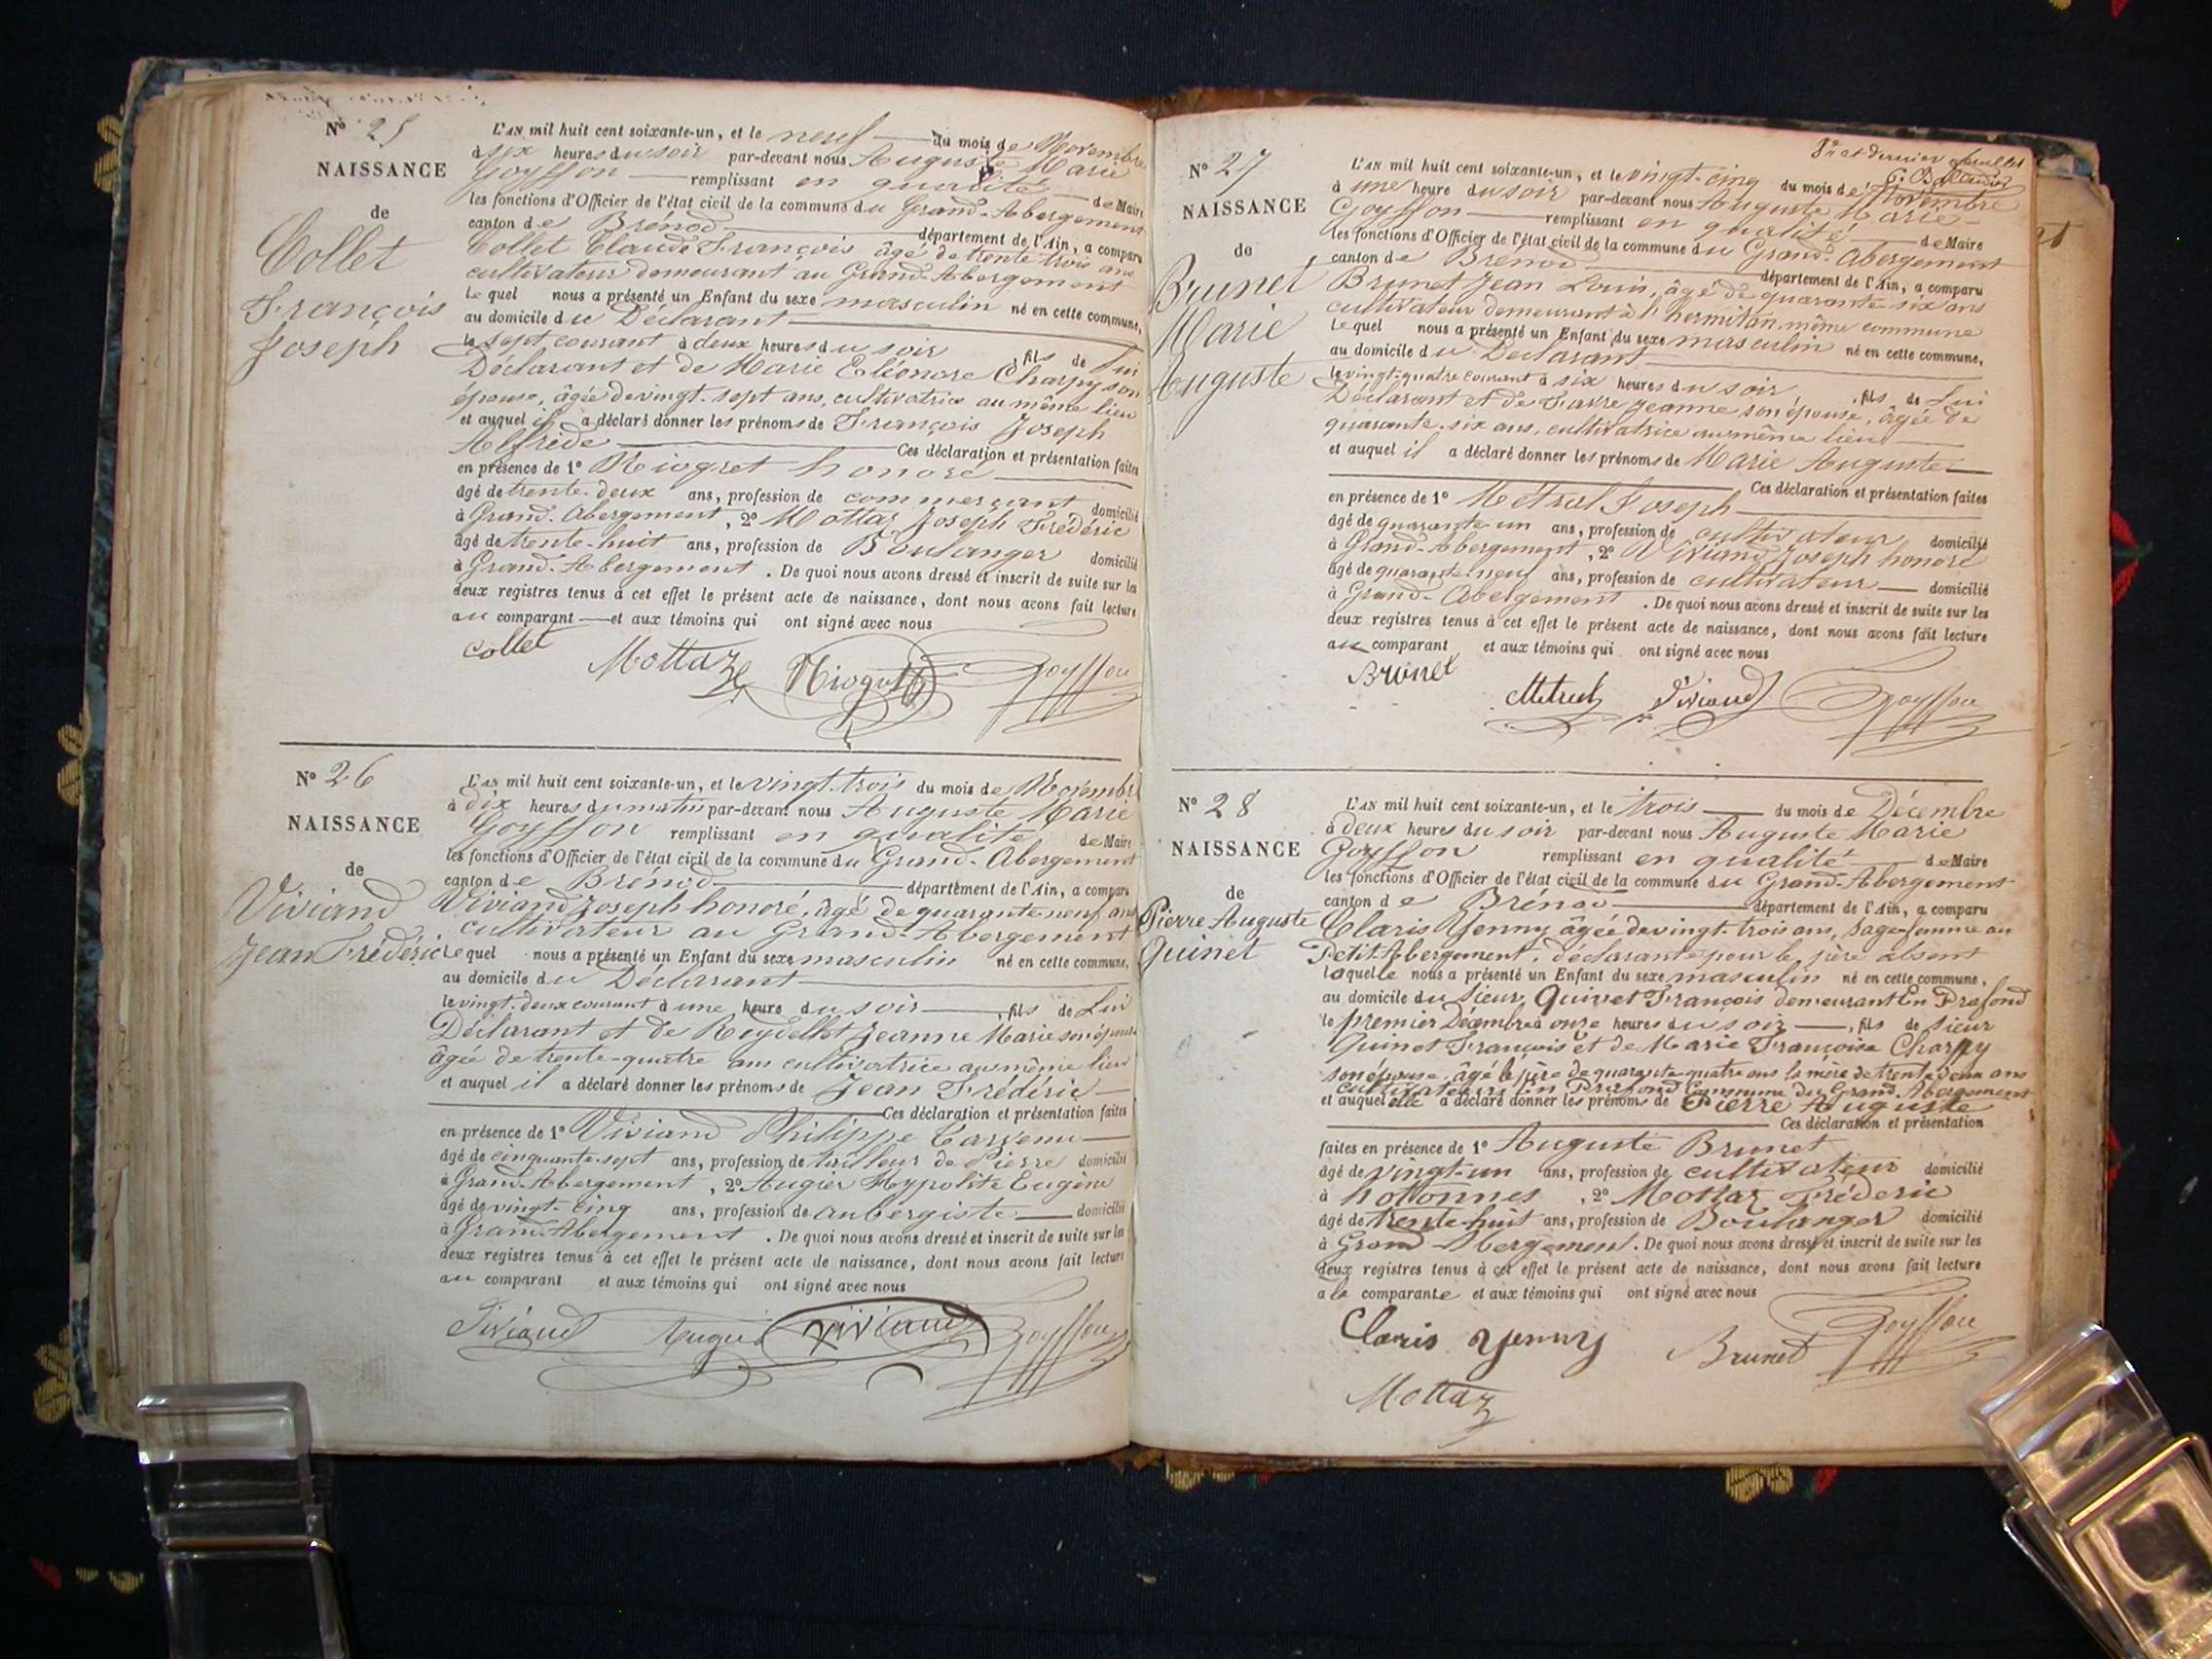 N° 25
NAISSANCE
de
Collet
François
Joseph
L'AN mil huit cent soixante-un, et le neuf du mois de Novembre
à six heures du soir par-devant nous Auguste Marie
Goyffon remplissant en qualité de Maire
les fonctions d'Officier de l'état civil de la commune du Grand-Abergement
canton de Brénod département de l'Ain, a comparu
Collet Claude François âgé de trente trois ans
cultivateur demeurant au Grand-Abergement
Lequel nous a présenté un Enfant du sexe masculin né en cette commune,
au domicile du Déclarant
le sept courant à deux heures du soir, fils de Lui
Déclarant et de Marie Eléonore Charpy son
épouse, âgée de vingt-sept ans, cultivatrice au même lieu
et auquel il a déclaré donner les prénoms de François Joseph
Alfride Ces déclaration et présentation faites
en présence de 1° Riogret honoré
âgé de trente-deux ans, profession de commerçant domicilié
à Grand-Abergement, 2° Mottaz Joseph Frédéric
âgé de trente-huit ans, profession de Boulanger domicilié
à Grand-Abergement. De quoi nous avons dressé et inscrit de suite sur les
deux registres tenus à cet effet le présent acte de naissance, dont nous avons fait lecture
au comparant et aux témoins qui ont signé avec nous
Collet Mottaz Goyffon
N° 26
NAISSANCE
de
Viviand
Jean Frédéric
L'AN mil huit cent soixante-un, et le vingt-trois du mois de Novembre
à dix heures du matin par-devant nous Auguste Marie
Goyffon remplissant en qualité de Maire
les fonctions d'Officier de l'état civil de la commune du Grand-Abergement
canton de Brénod département de l'Ain, a comparu
Viviand Joseph honoré, âgé de quarante neuf ans
cultivateur au Grand-Abergement
Lequel nous a présenté un Enfant du sexe masculin né en cette commune,
au domicile du Déclarant
le vingt-deux courant à une heure du soir, fils de Lui
Déclarant et de Reydellet Jeanne Marie son épouse
âgée de trente-quatre ans cultivatrice au même lieu
et auquel il a déclaré donner les prénoms de Jean Frédéric
Ces déclaration et présentation faites
en présence de 1° Viviand Philippe
âgé de cinquante-sept ans, profession de tailleur de Pierre domicilié
à Grand-Abergement, 2° Augier Hypolite Eugène
âgé de vingt-cinq ans, profession de aubergiste domicilié
à Grand-Abergement. De quoi nous avons dressé et inscrit de suite sur les
deux registres tenus à cet effet le présent acte de naissance, dont nous avons fait lecture
au comparant et aux témoins qui ont signé avec nous
Viviand Viviand Goyffon
et dernier feuillet
N° 27
NAISSANCE
de
Brunet
Marie
Auguste
L'AN mil huit cent soixante-un, et le vingt-cinq du mois de Novembre
à une heure du soir par-devant nous Auguste Marie
Goyffon remplissant en qualité de Maire
les fonctions d'Officier de l'état civil de la commune du Grand-Abergement
canton de Brénod département de l'Ain, a comparu
Brunet Jean Louis, âgé de quarante-six ans
cultivateur demeurant à l'hermitan même commune
Lequel nous a présenté un Enfant du sexe masculin né en cette commune,
au domicile du Déclarant
le vingt-quatre courant à six heures du soir, fils de Lui
Déclarant et de Favre Jeanne son épouse, âgée de
quarante-six ans, cultivatrice au même lieu
et auquel il a déclaré donner les prénoms de Marie Auguste
Ces déclaration et présentation faites
en présence de 1° Métral Joseph
âgé de quarante-un ans, profession de cultivateur domicilié
à Grand-Abergement, 2° Viviand Joseph honoré
âgé de quarante-neuf ans, profession de cultivateur domicilié
à Grand-Abergement. De quoi nous avons dressé et inscrit de suite sur les
deux registres tenus à cet effet le présent acte de naissance, dont nous avons fait lecture
au comparant et aux témoins qui ont signé avec nous
Brunet Métral Viviand Goyffon
N° 28
NAISSANCE
de
Pierre Auguste
Quinet
L'AN mil huit cent soixante-un, et le trois du mois de Décembre
à deux heures du soir par-devant nous Auguste Marie
Goyffon remplissant en qualité de Maire
les fonctions d'Officier de l'état civil de la commune du Grand-Abergement
canton de Brénod département de l'Ain, a comparu
Claris Yenny âgée de vingt-trois ans, sage-femme au
Petit-Abergement, déclarante pour le père absent
Laquelle nous a présenté un Enfant du sexe masculin né en cette commune,
au domicile du sieur Quinet François demeurant En Prafond
le premier Décembre à onze heures du soir, fils de sieur
Quinet François et de Marie Françoise Charpy
son épouse, âgé le père de quarante-quatre ans la mère de trente deux ans
cultivateurs En Prafond Commune du Grand-Abergement
et auquel elle a déclaré donner les prénoms de Pierre Auguste
Ces déclaration et présentation
faites en présence de 1° Auguste Brunet
âgé de vingt-un ans, profession de cultivateur domicilié
à hotonnes, 2° Mottaz Fréderic
âgé de trente-huit ans, profession de Boulanger domicilié
à Grand-Abergement. De quoi nous avons dressé et inscrit de suite sur les
deux registres tenus à cet effet le présent acte de naissance, dont nous avons fait lecture
à la comparante et aux témoins qui ont signé avec nous
Claris Yenny Brunet Goyffon
Mottaz